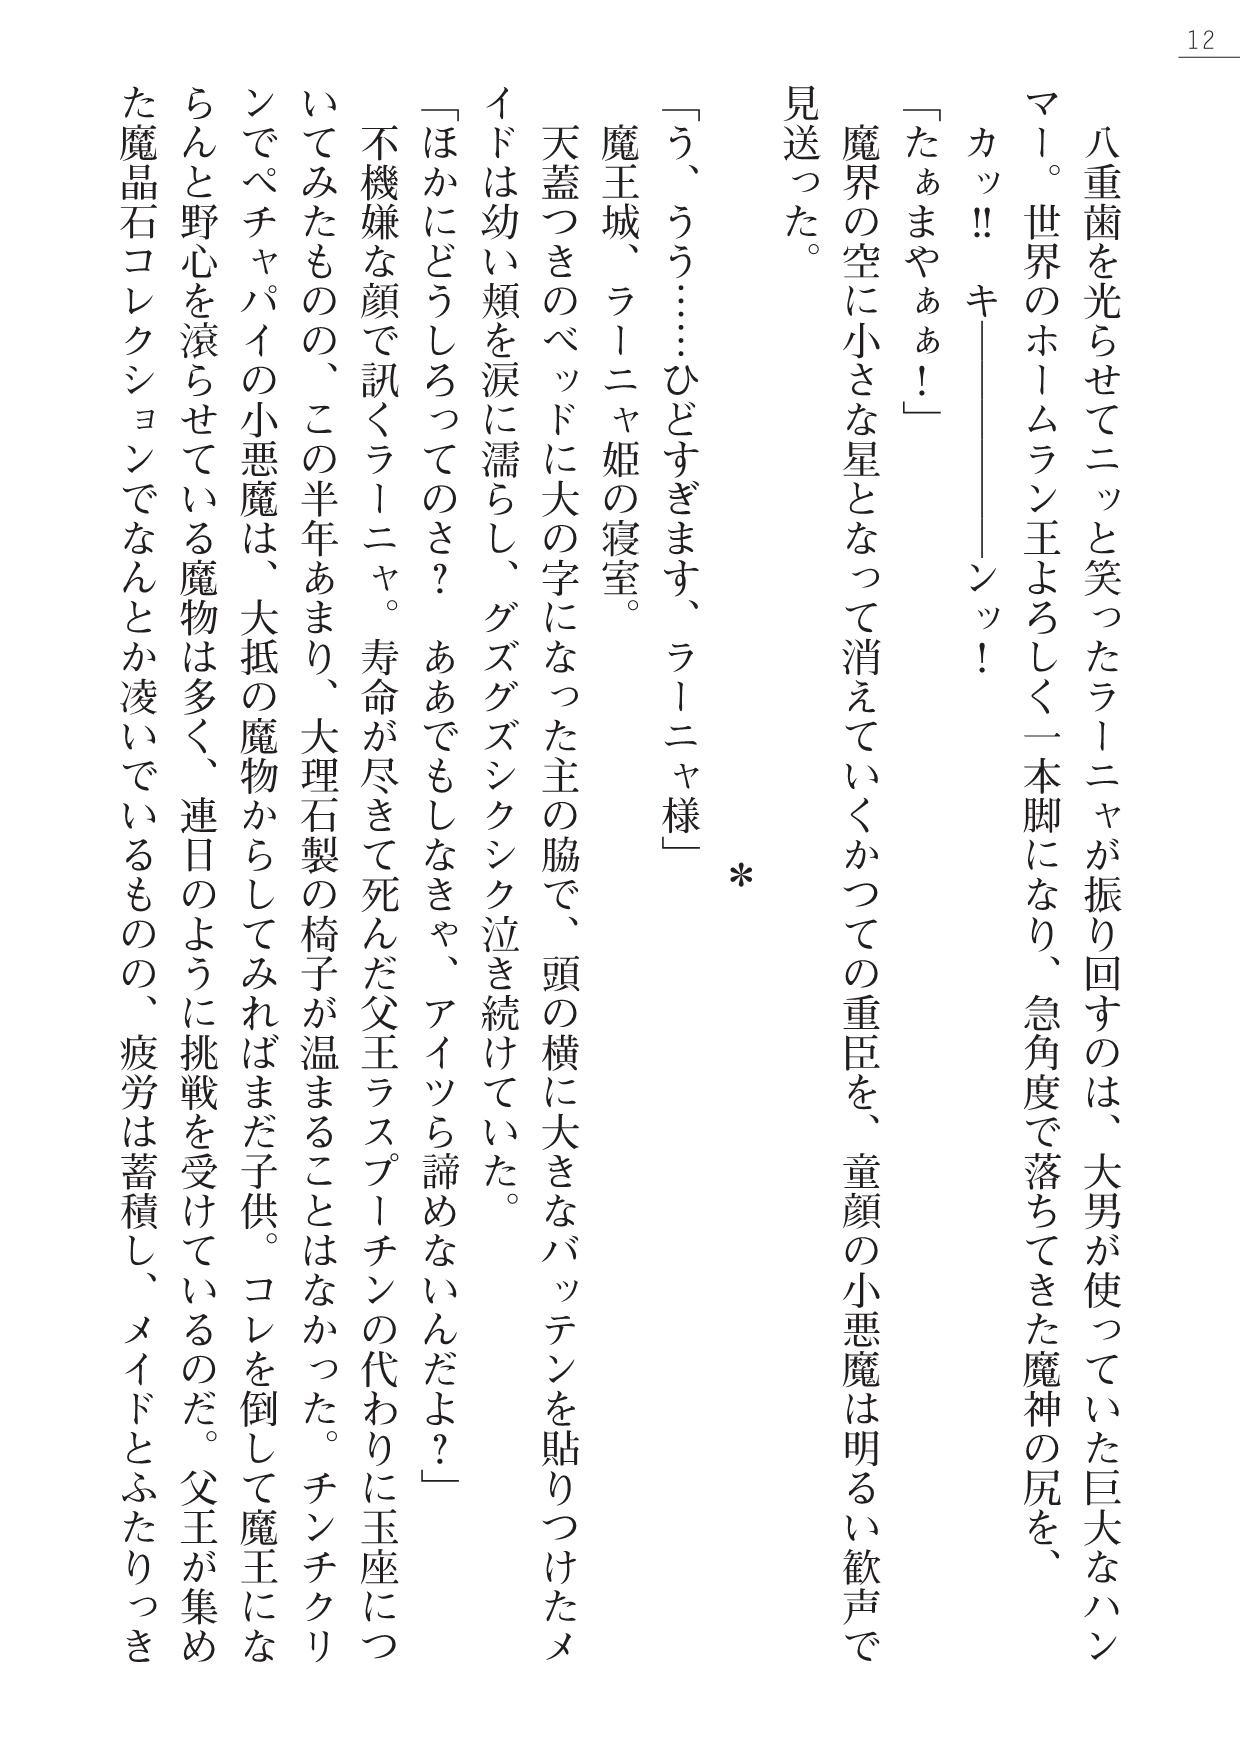 12
　八重歯を光らせてニッと笑ったラーニャが振り回すのは、大男が使っていた巨大なハン
マー。世界のホームラン王よろしく一本脚になり、急角度で落ちてきた魔神の尻を、
　カッ‼　キ――――――ンッ！
「たぁまやぁぁ！」
　魔界の空に小さな星となって消えていくかつての重臣を、童顔の小悪魔は明るい歓声で
見送った。
＊
「う、うう……ひどすぎます、ラーニャ様」
　魔王城、ラーニャ姫の寝室。
　天蓋つきのベッドに大の字になった主の脇で、頭の横に大きなバッテンを貼りつけたメ
イドは幼い頬を涙に濡らし、グズグズシクシク泣き続けていた。
「ほかにどうしろってのさ？　ああでもしなきゃ、アイツら諦めないんだよ？」
　不機嫌な顔で訊くラーニャ。寿命が尽きて死んだ父王ラスプーチンの代わりに玉座につ
いてみたものの、この半年あまり、大理石製の椅子が温まることはなかった。チンチクリ
ンでペチャパイの小悪魔は、大抵の魔物からしてみればまだ子供。コレを倒して魔王にな
らんと野心を滾らせている魔物は多く、連日のように挑戦を受けているのだ。父王が集め
た魔晶石コレクションでなんとか凌いでいるものの、疲労は蓄積し、メイドとふたりっき